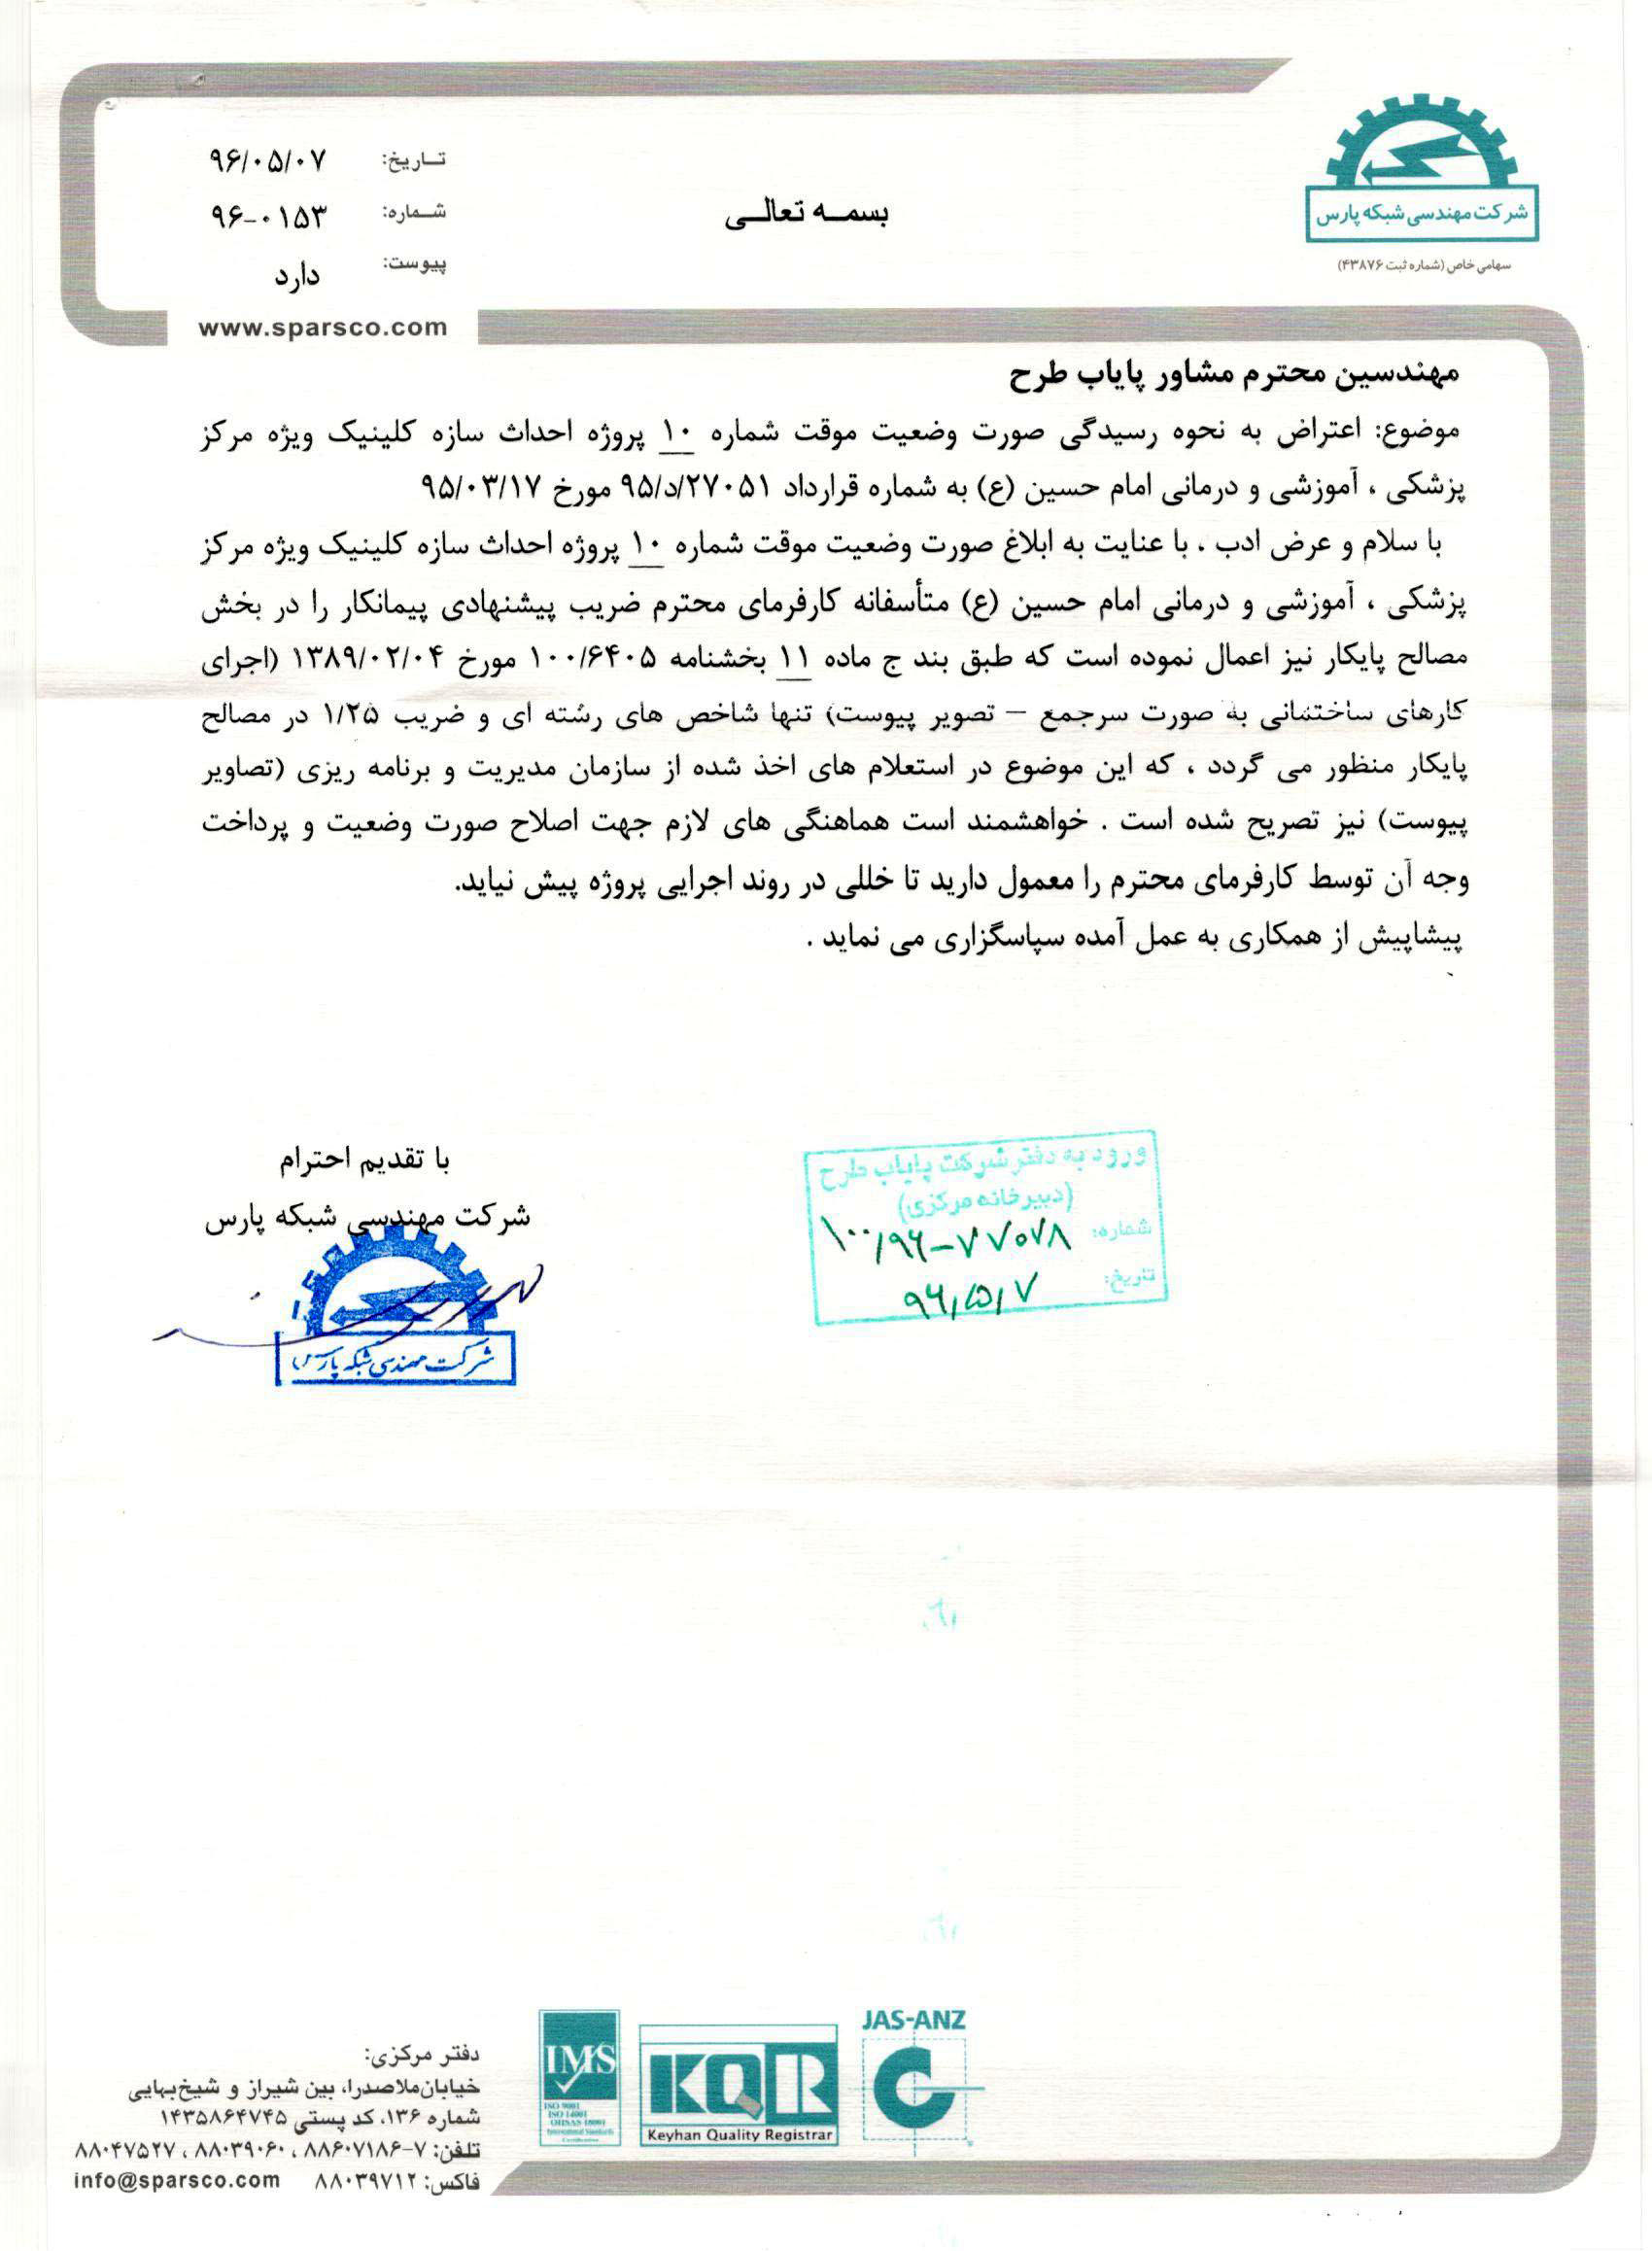 شرکت مهندسی شبکه پارس
سهامی خاص (شماره ثبت ۴۳۸۷۶)
بسمه تعالی
تاریخ: ۹۶/۰۵/۰۷
شماره: ۹۶-۰۱۵۳
پیوست: دارد
www.sparsco.com
مهندسین محترم مشاور پایاب طرح
موضوع: اعتراض به نحوه رسیدگی صورت وضعیت موقت شماره ۱۰ پروژه احداث سازه کلینیک ویژه مرکز
پزشکی ، آموزشی و درمانی امام حسین (ع) به شماره قرارداد ۹۵/د/۲۷۰۵۱ مورخ ۹۵/۰۳/۱۷
با سلام و عرض ادب ، با عنایت به ابلاغ صورت وضعیت موقت شماره ۱۰ پروژه احداث سازه کلینیک ویژه مرکز
پزشکی ، آموزشی و درمانی امام حسین (ع) متأسفانه کارفرمای محترم ضریب پیشنهادی پیمانکار را در بخش
مصالح پایکار نیز اعمال نموده است که طبق بند ج ماده ۱۱ بخشنامه ۱۰۰/۶۴۰۵ مورخ ۱۳۸۹/۰۲/۰۴ (اجرای
کارهای ساختمانی به صورت سرجمع – تصویر پیوست) تنها شاخص های رشته ای و ضریب ۱/۲۵ در مصالح
پایکار منظور می گردد ، که این موضوع در استعلام های اخذ شده از سازمان مدیریت و برنامه ریزی (تصاویر
پیوست) نیز تصریح شده است . خواهشمند است هماهنگی های لازم جهت اصلاح صورت وضعیت و پرداخت
وجه آن توسط کارفرمای محترم را معمول دارید تا خللی در روند اجرایی پروژه پیش نیاید.
پیشاپیش از همکاری به عمل آمده سپاسگزاری می نماید .
با تقدیم احترام
شرکت مهندسی شبکه پارس
شرکت مهندسی شبکه پارس
ورود به دفتر شرکت پایاب طرح
(دبیرخانه مرکزی)
شماره: ۱۰۰/۹۶-۷۷۰۷۸
تاریخ: ۹۶/۵/۷
JAS-ANZ
IMS
ISO 9001
ISO 14001
OHSAS 18001
KQR
Keyhan Quality Registrar
دفتر مرکزی:
خیابان ملاصدرا، بین شیراز و شیخ‌بهایی
شماره ۱۳۶، کد پستی ۱۴۳۵۸۶۴۷۴۵
تلفن: ۷-۸۸۶۰۷۱۸۶ ، ۸۸۰۳۹۰۶۰ ، ۸۸۰۴۷۵۲۷
فاکس: ۸۸۰۳۹۷۱۲ info@sparsco.com